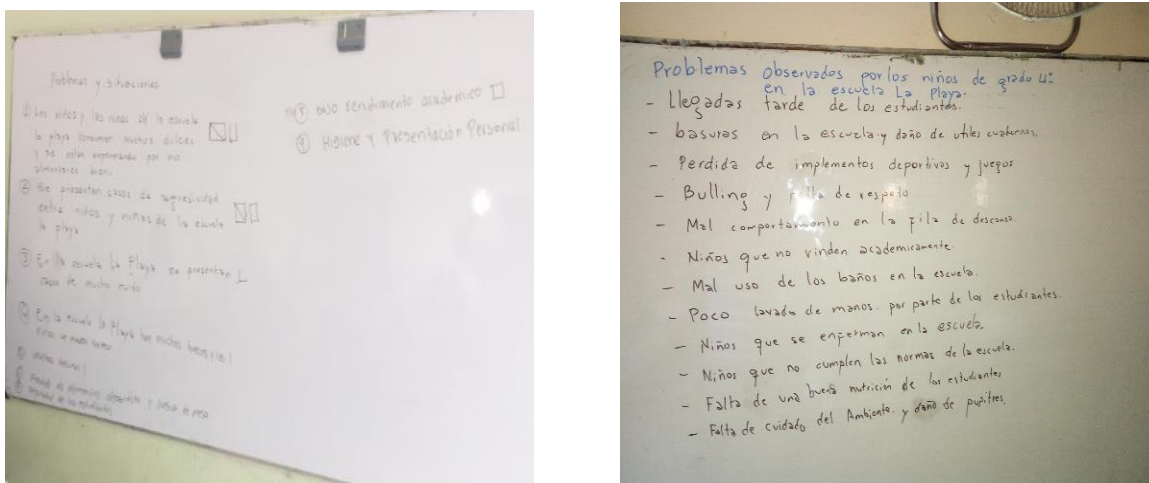 Problemas y situaciones
① Los niños y las niñas de la escuela
la playa consumen muchos dulces
y se están enfermando por no
alimentarse bien.
② Se presentan casos de agresividad
entre niños y niñas de la escuela
la playa
③ En la escuela La Playa se presentan
casos de mucho ruido
④ En la escuela La Playa hay muchos
⑧ bajo rendimento académico
⑨ Higiene y Presentación Personal
Problemas observados por los niños de grado 4º
en la escuela La Playa.
- Llegadas tarde de los estudiantes.
- basuras en la escuela y daño de utiles cuadernos.
- Perdida de implementos deportivos y juegos
- Bulling y falta de respeto
- Mal comportamiento en la fila de descanso.
- Niños que no rinden academicamente.
- Mal uso de los baños en la escuela.
- Poco lavado de manos. por parte de los estudiantes.
- Niños que se enferman en la escuela.
- Niños que no cumplen las normas de la escuela.
- Falta de una buena nutrición de los estudiantes
- Falta de cuidado del Ambiente. y daño de pupitres.